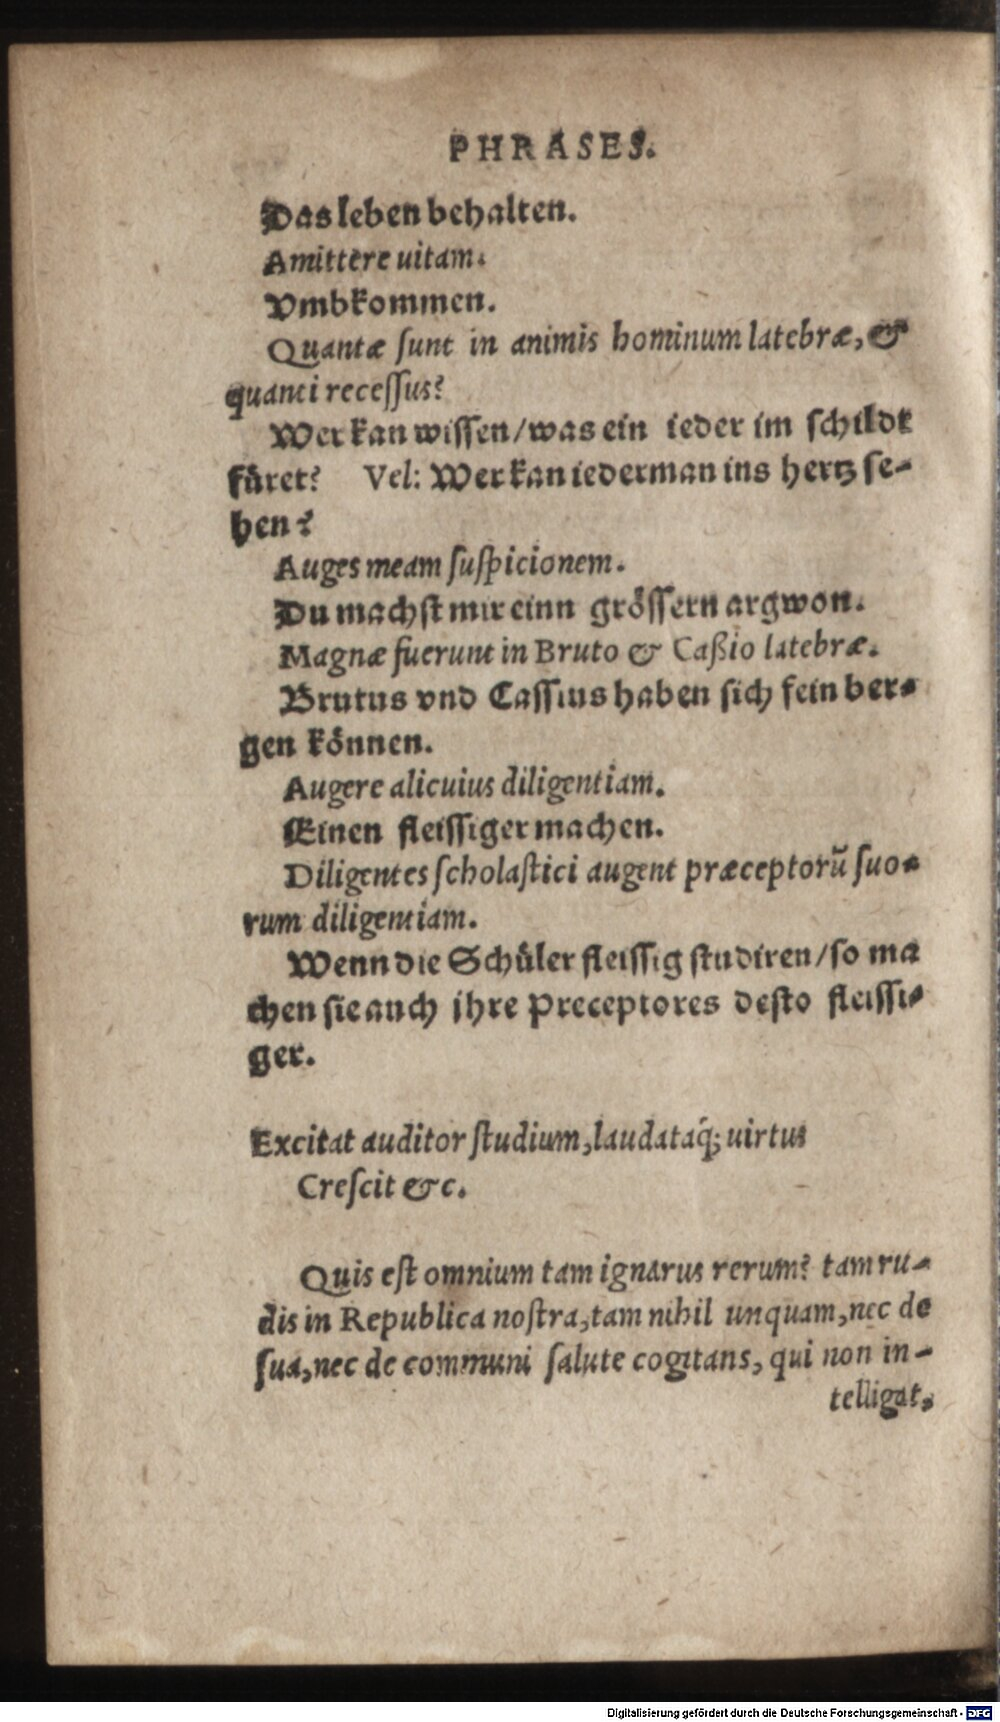 PHRASES.
Das leben behalten.
Amittere uitam.
Vmbkommen.
Quantæ ſunt in animis hominum latebræ, &
quanti receſſus?
Wer kan wiſſen/was ein ieder im ſchildt
fuͤret? Vel: Wer kan iederman ins hertz ſe-
hen?
Auges meam ſuſpicionem.
Du machſt mir einn groͤſſern argwon.
Magnæ fuerunt in Bruto & Caßio latebræ.
Brutus vnd Caſſius haben ſich fein ber-
gen koͤnnen.
Augere alicuius diligentiam.
Einen fleiſſiger machen.
Diligentes ſcholaſtici augent præceptorũ ſuo-
rum diligentiam.
Wenn die Schuͤler fleiſſig ſtudiren/ſo ma
chen ſie auch jhre Preceptores deſto fleiſſi-
ger.
Excitat auditor ſtudium, laudataq́; uirtus
Creſcit &c.
Quis eſt omnium tam ignarus rerum? tam ru-
dis in Republica noſtra, tam nihil unquam, nec de
ſua, nec de communi ſalute cogitans, qui non in-
telligat,
Digitalisierung gefördert durch die Deutsche Forschungsgemeinschaft - DFG